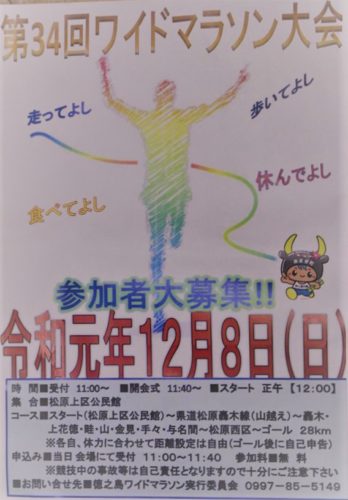 第34回ワイドマラソン大会
走ってよし
歩いてよし
休んでよし
食べてよし
参加者大募集!!
令和元年12月8日(日)
時 間■受付 11:00～ ■開会式 11:40～ ■スタート 正午【12:00】
集 合■松原上区公民館
コース■スタート(松原上区公民館)～県道松原轟木線(山越え)～轟木・
上花徳・畦・山・金見・手々・与名間～松原西区～ゴール 28km
※各自、体力に合わせて距離設定は自由(ゴール後に自己申告)
申込み■当日会場にて受付 11:00～11:40 参加料■無 料
※競技中の事故等は自己責任となりますので十分にご注意下さい
■お問い合せ先■徳之島ワイドマラソン実行委員会 0997-85-5149